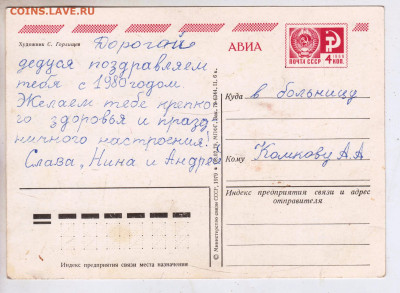 COINS.LAVE.RU
Художник С. Горлищев
Дорогой
дедуля поздравляем
тебя с 1980 годом.
Желаем тебе крепко
го здоровья и празд
ничного настроения!
Слава, Нина и Андрей
АВИА
ПОЧТА СССР
4 КОП.
Куда в больницу
Кому Компову А А
Индекс предприятия связи и адрес
отправителя
© Министерство связи СССР, 1979
Индекс предприятия связи места назначения